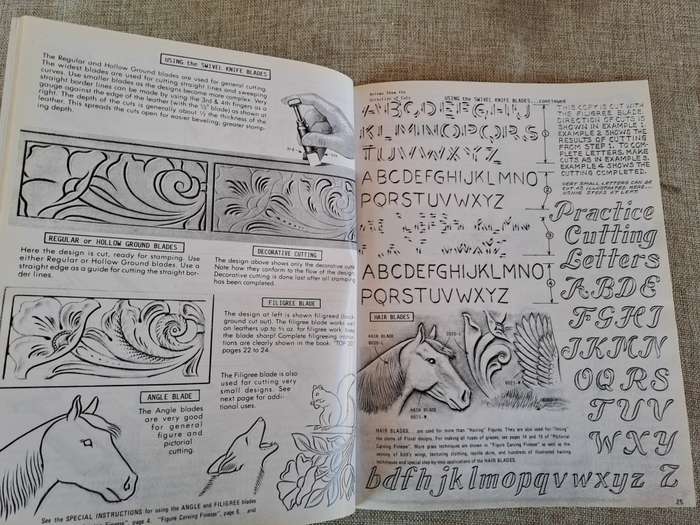 USING the SWIVEL KNIFE BLADES
The Regular and Hollow Ground blades are used for general cutting.
The widest blades are used for cutting straight lines and sweeping
curves. Use smaller blades as the designs become more complex. Very
straight border lines can be made by using the 3rd & 4th fingers as a
gauge against the edge of the leather (with the ½" blade) as shown at
right. The depth of the cuts is generally about ½ the thickness of the
leather. This spreads the cuts open for easier beveling, greater stamp-
ing depth.
REGULAR or HOLLOW GROUND BLADES
Here the design is cut, ready for stamping. Use
either Regular or Hollow Ground blades. Use a
straight edge as a guide for cutting the straight bor-
der lines.
DECORATIVE CUTTING
The design above shows only the decorative cuts.
Note how they conform to the flow of the design.
Decorative cutting is done last after all stamping
has been completed.
FILIGREE BLADE
The design at left is shown filigreed
ground cut out). The filigree blade works
on leathers up to
the blade sharp! Complete filigreeing
tions are clearly shown in the book "TOP
pages 22 to 24.
The Filigree blade is also
used for cutting very
small designs. See
next page for addi-
tional uses.
ANGLE BLADE
The Angle blades
are very good
for general
figure and
pictorial
cutting.
See the SPECIAL INSTRUCTIONS for using the ANGLE and FILIGREE blades
page 4. "Figure Carving Finesse", page 6, and
Arrows Show the
Direction of Cuts
USING the SWIVEL KNIFE BLADES...continued
ABCDEFGHIJ
KLMNOPQRS
TUVWXYZ
ABCDEFGHIJKLMNO
PQRSTUVWXYZ
ABCDEFGHIJKLMNO
PQRSTUVWXYZ
THIS COPY IS CUT WITH
THE FILIGREE BLADE.
DIRECTION OF CUTS IS
SHOWN IN EXAMPLE 1.
EXAMPLE 2 SHOWS THE
RESULTS OF CUTTING
FROM STEP 1. TO COM-
PLETE LETTERS, MAKE
CUTS AS IN EXAMPLE 3.
EXAMPLE 4 SHOWS THE
CUTTING COMPLETED.
VERY SMALL LETTERS CAN BE
CUT AS ILLUSTRATED HERE...
Practice
Cutting
Letters
ABDE
FGHI
JKMN
OQRS
TUV
WXY
Z
HAIR BLADES
HAIR BLADE
HAIR BLADE
HAIR BLADES... are used for more than "Hairing" Figures. They are also used for "lining"
the stems of Floral designs. For making all types of grasses, see pages 14 and 15 of "Pictorial
Carving Finesse". More grass techniques are shown in "Figure Carving Finesse" as well as the
texturing clothing, reptile skins, and hundreds of illustrated hairing
techniques and special step-by-step applications of the HAIR BLADES.
bdfhjklmopqvwxyz
25